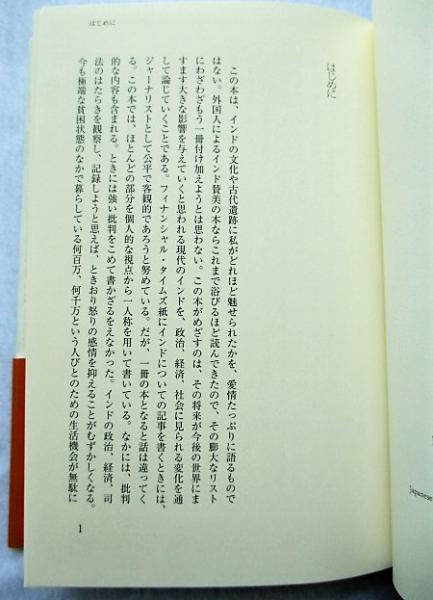 はじめに
はじめに
この本は、インドの文化や古代遺跡に私がどれほど魅せられたかを、愛情たっぷりに語るもので
はない。外国人によるインド賛美の本ならこれまで浴びるほど読んできたので、その膨大なリスト
にわざわざもう一冊付け加えようとは思わない。この本がめざすのは、その将来が今後の世界にま
すます大きな影響を与えていくと思われる現代のインドを、政治、経済、社会に見られる変化を通
して論じていくことである。フィナンシャル・タイムズ紙にインドについての記事を書くときには、
ジャーナリストとして公平で客観的であろうと努めている。だが、一冊の本となると話は違ってく
る。この本では、ほとんどの部分を個人的な視点から一人称を用いて書いている。なかには、批判
的な内容も含まれる。ときには強い批判をこめて書かざるをえなかった。インドの政治、経済、司
法のはたらきを観察し、記録しようと思えば、ときおり怒りの感情を抑えることがむずかしくなる。
今も極端な貧困状態のなかで暮らしている何百万、何千万という人びとのための生活機会が無駄に
1
Japanese